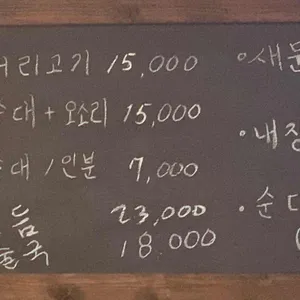 머리고기 15,000
순대+오소리 15,000
순대/인분 7,000
모듬 23,000
술국 18.000
·새
·내장
·순대
(